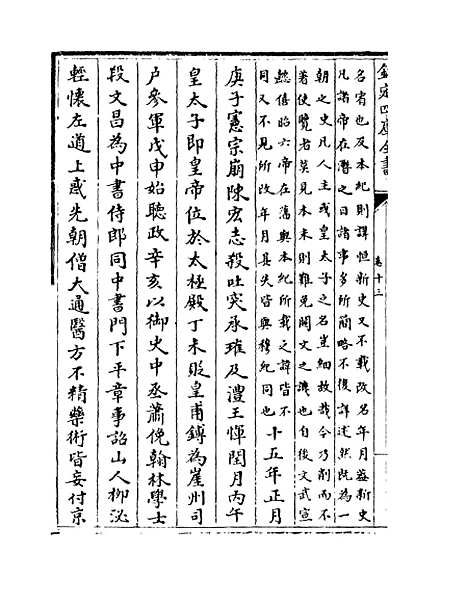 欽定四庫全書
卷十三
名宥也及本紀則諱恒新史又不載改名年月蓋新史
凡諸帝在潛之日諸事多所簡略不復詳述然既為一
朝之史凡人主或皇太子之名豈細故哉今乃削而不
著使覽者莫見本末則難免闕文之譏也自後文武宣
懿僖昭六帝在舊與本紀所載之諱皆不
同又不見所改年月其失皆與穆紀同也
十五年正月
庚子憲宗崩陳宏志殺吐突承璀及澧王惲閏月丙午
皇太子即皇帝位於太極殿丁未貶皇甫鎛為崖州司
户參軍戊申始聽政辛亥以御史中丞蕭俛翰林學士
段文昌為中書侍郎同中書門下平章事詔山人柳泌
輕懷左道上惑先朝僧大通醫方不精藥術皆妄付京